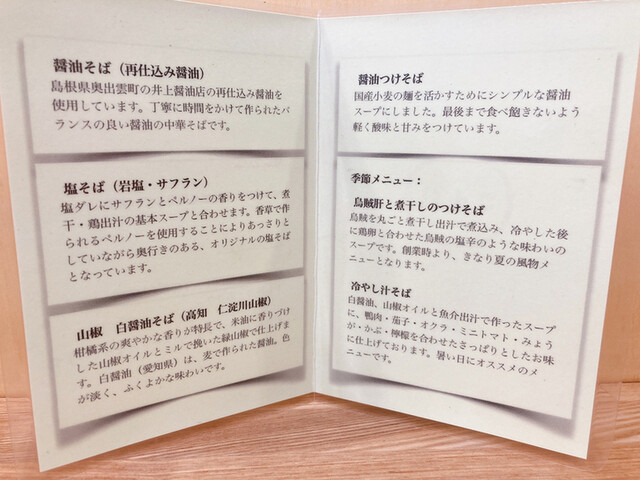 醤油そば（再仕込み醤油）
島根県奥出雲町の井上醤油店の再仕込み醤油を
使用しています。丁寧に時間をかけて作られたバ
ランスの良い醤油の中華そばです。
塩そば（岩塩・サフラン）
塩ダレにサフランとペルノーの香りをつけて、煮
干・鶏出汁の基本スープと合わせます。香草で作
られるペルノーを使用することによりあっさりと
していながら奥行きのある、オリジナルの塩そば
となっています。
山椒　白醤油そば（高知　仁淀川山椒）
柑橘系の爽やかな香りが特長で、米油に香りづけ
した山椒オイルとミルで挽いた緑山椒で仕上げま
す。白醤油（愛知県）は、麦で作られた醤油。色
が淡く、ふくよかな味わいです。
醤油つけそば
国産小麦の麺を活かすためにシンプルな醤油
スープにしました。最後まで食べ飽きないよう
軽く酸味と甘みをつけています。
季節メニュー：
烏賊肝と煮干しのつけそば
烏賊を丸ごと煮干し出汁で煮込み、冷やした後
に鶏卵と合わせた烏賊の塩辛のような味わいの
スープです。創業時より、きなり夏の風物メ
ニューとなります。
冷やし汁そば
白醤油、山椒オイルと魚介出汁で作ったスープ
に、鴨肉・茄子・オクラ・ミニトマト・みょう
が・かぶ・檸檬を合わせたさっぱりとしたお味
に仕上げております。暑い日にオススメのメ
ニューです。